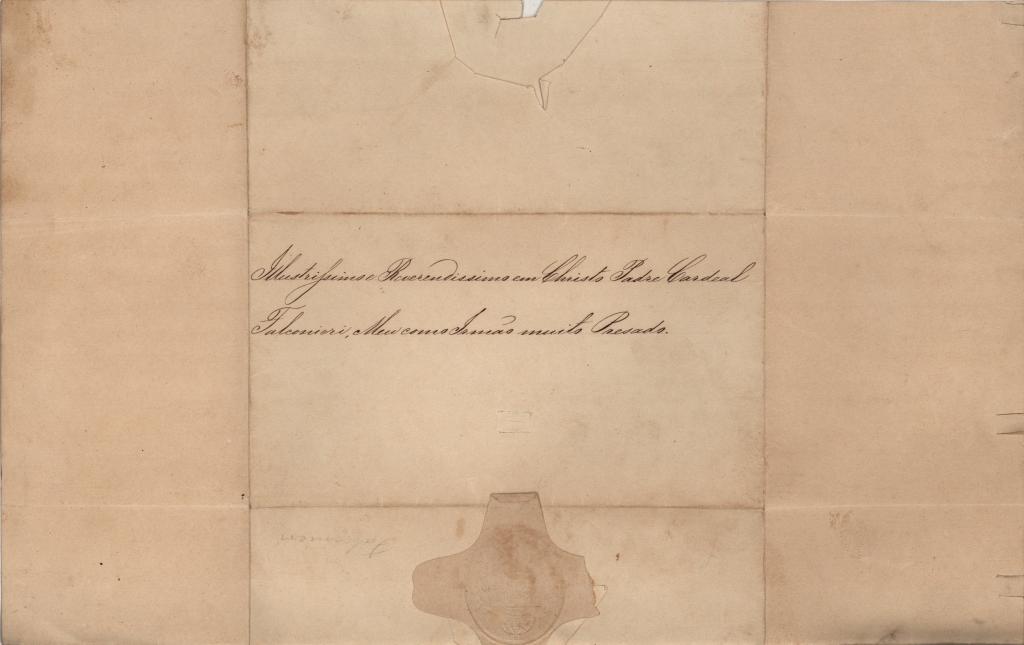 Illustrissimo e Reverendissimo em Christo Padre Cardeal
Falconieri, Meu como Irmão muito Presado.